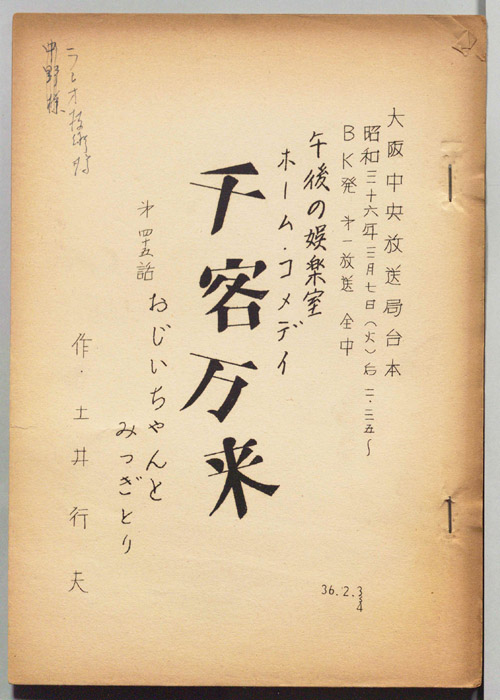 大阪中央放送局台本
昭和三十六年三月七日(火)后
BK発 㐧一放送 全中
午後の娯楽室
ホーム・コメデイ
千客万来
㐧四十五話 おじいちゃんと
みつぎとり
作・土井行夫
ラヂオ技術部
中野様
36.2.3
4